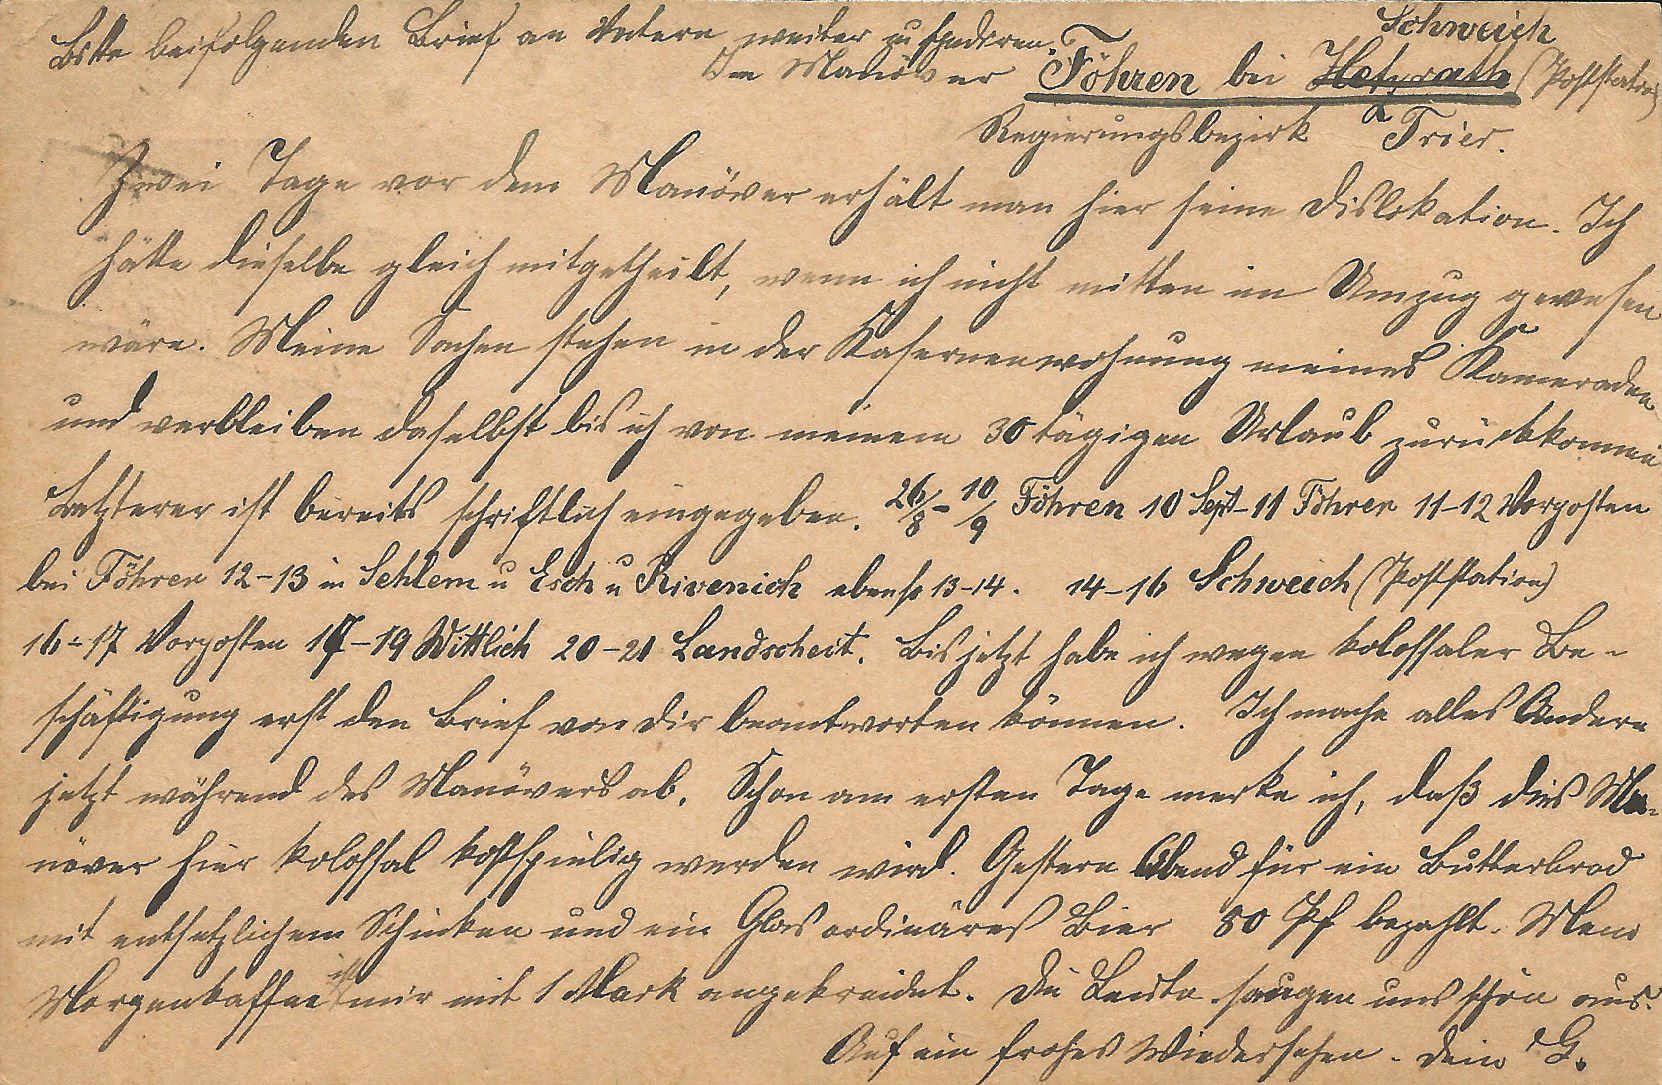 Bitte beifolgenden Brief an Vetern weiter zu spediren.
Schweich
Im Manöver Föhren bei Hetzrath (Poststation)
Regierungsbezirk Trier.
Zwei Tage vor dem Manöver erhält man hier seine Dislokation. Ich
hätte dieselbe gleich mitgetheilt, wenn ich nicht mitten im Umzug gewesen
wäre. Meine Sachen stehen in der Kasernenwohnung meines Kameraden
und verbleiben daselbst bis ich von meinem 30tägigen Urlaub zurückkomme
Letzterer ist bereits schriftlich eingegeben. 26/8 - 10/9 Föhren 10 Sept-11 Föhren 11-12 Vorposten
bei Föhren 12-13 in Sehlem u Esch u Rivenich ebenso 13-14. 14-16 Schweich (Poststation)
16-17 Vorposten 17-19 Wittlich 20-21 Landscheit. Bis jetzt habe ich wegen kolossaler Be-
schäftigung erst den Brief von Dir beantworten können. Ich mache alles Andere
jetzt während des Manövers ab. Schon am ersten Tage merke ich, daß dies Ma-
növer hier kolossal kostspielig werden wird. Gestern Abend für ein Butterbrod
mit entsetzlichem Schinken und ein Glas ordinäres Bier 80 Pf bezahlt. Mein
Morgenkaffee ist mir mit 1 Mark angekreidet. Die Leute saugen uns schön aus.
Auf ein frohes Wiedersehen. Dein G.